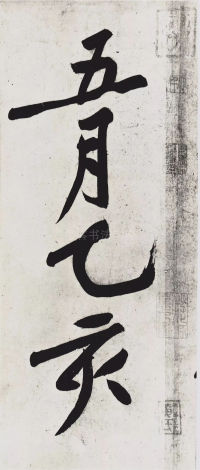 五月乙亥